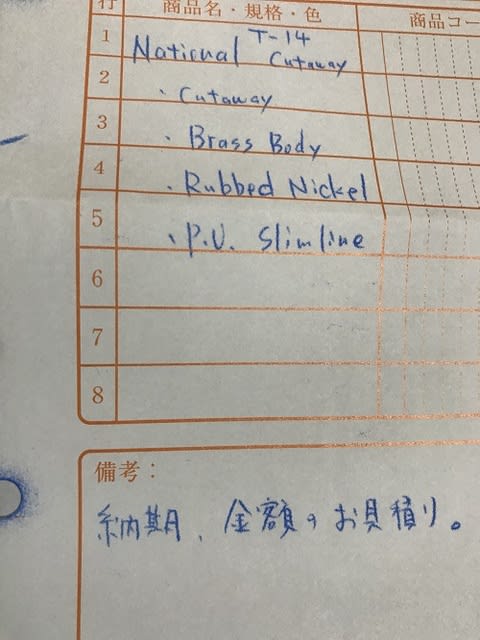 行 商品名・規格・色 商品コー
1 National T-14 Cutaway
2 ・Cutaway
3 ・Brass Body
4 ・Rubbed Nickel
5 ・P.U. Slimline
6
7
8
備考：
納期、金額のお見積り。